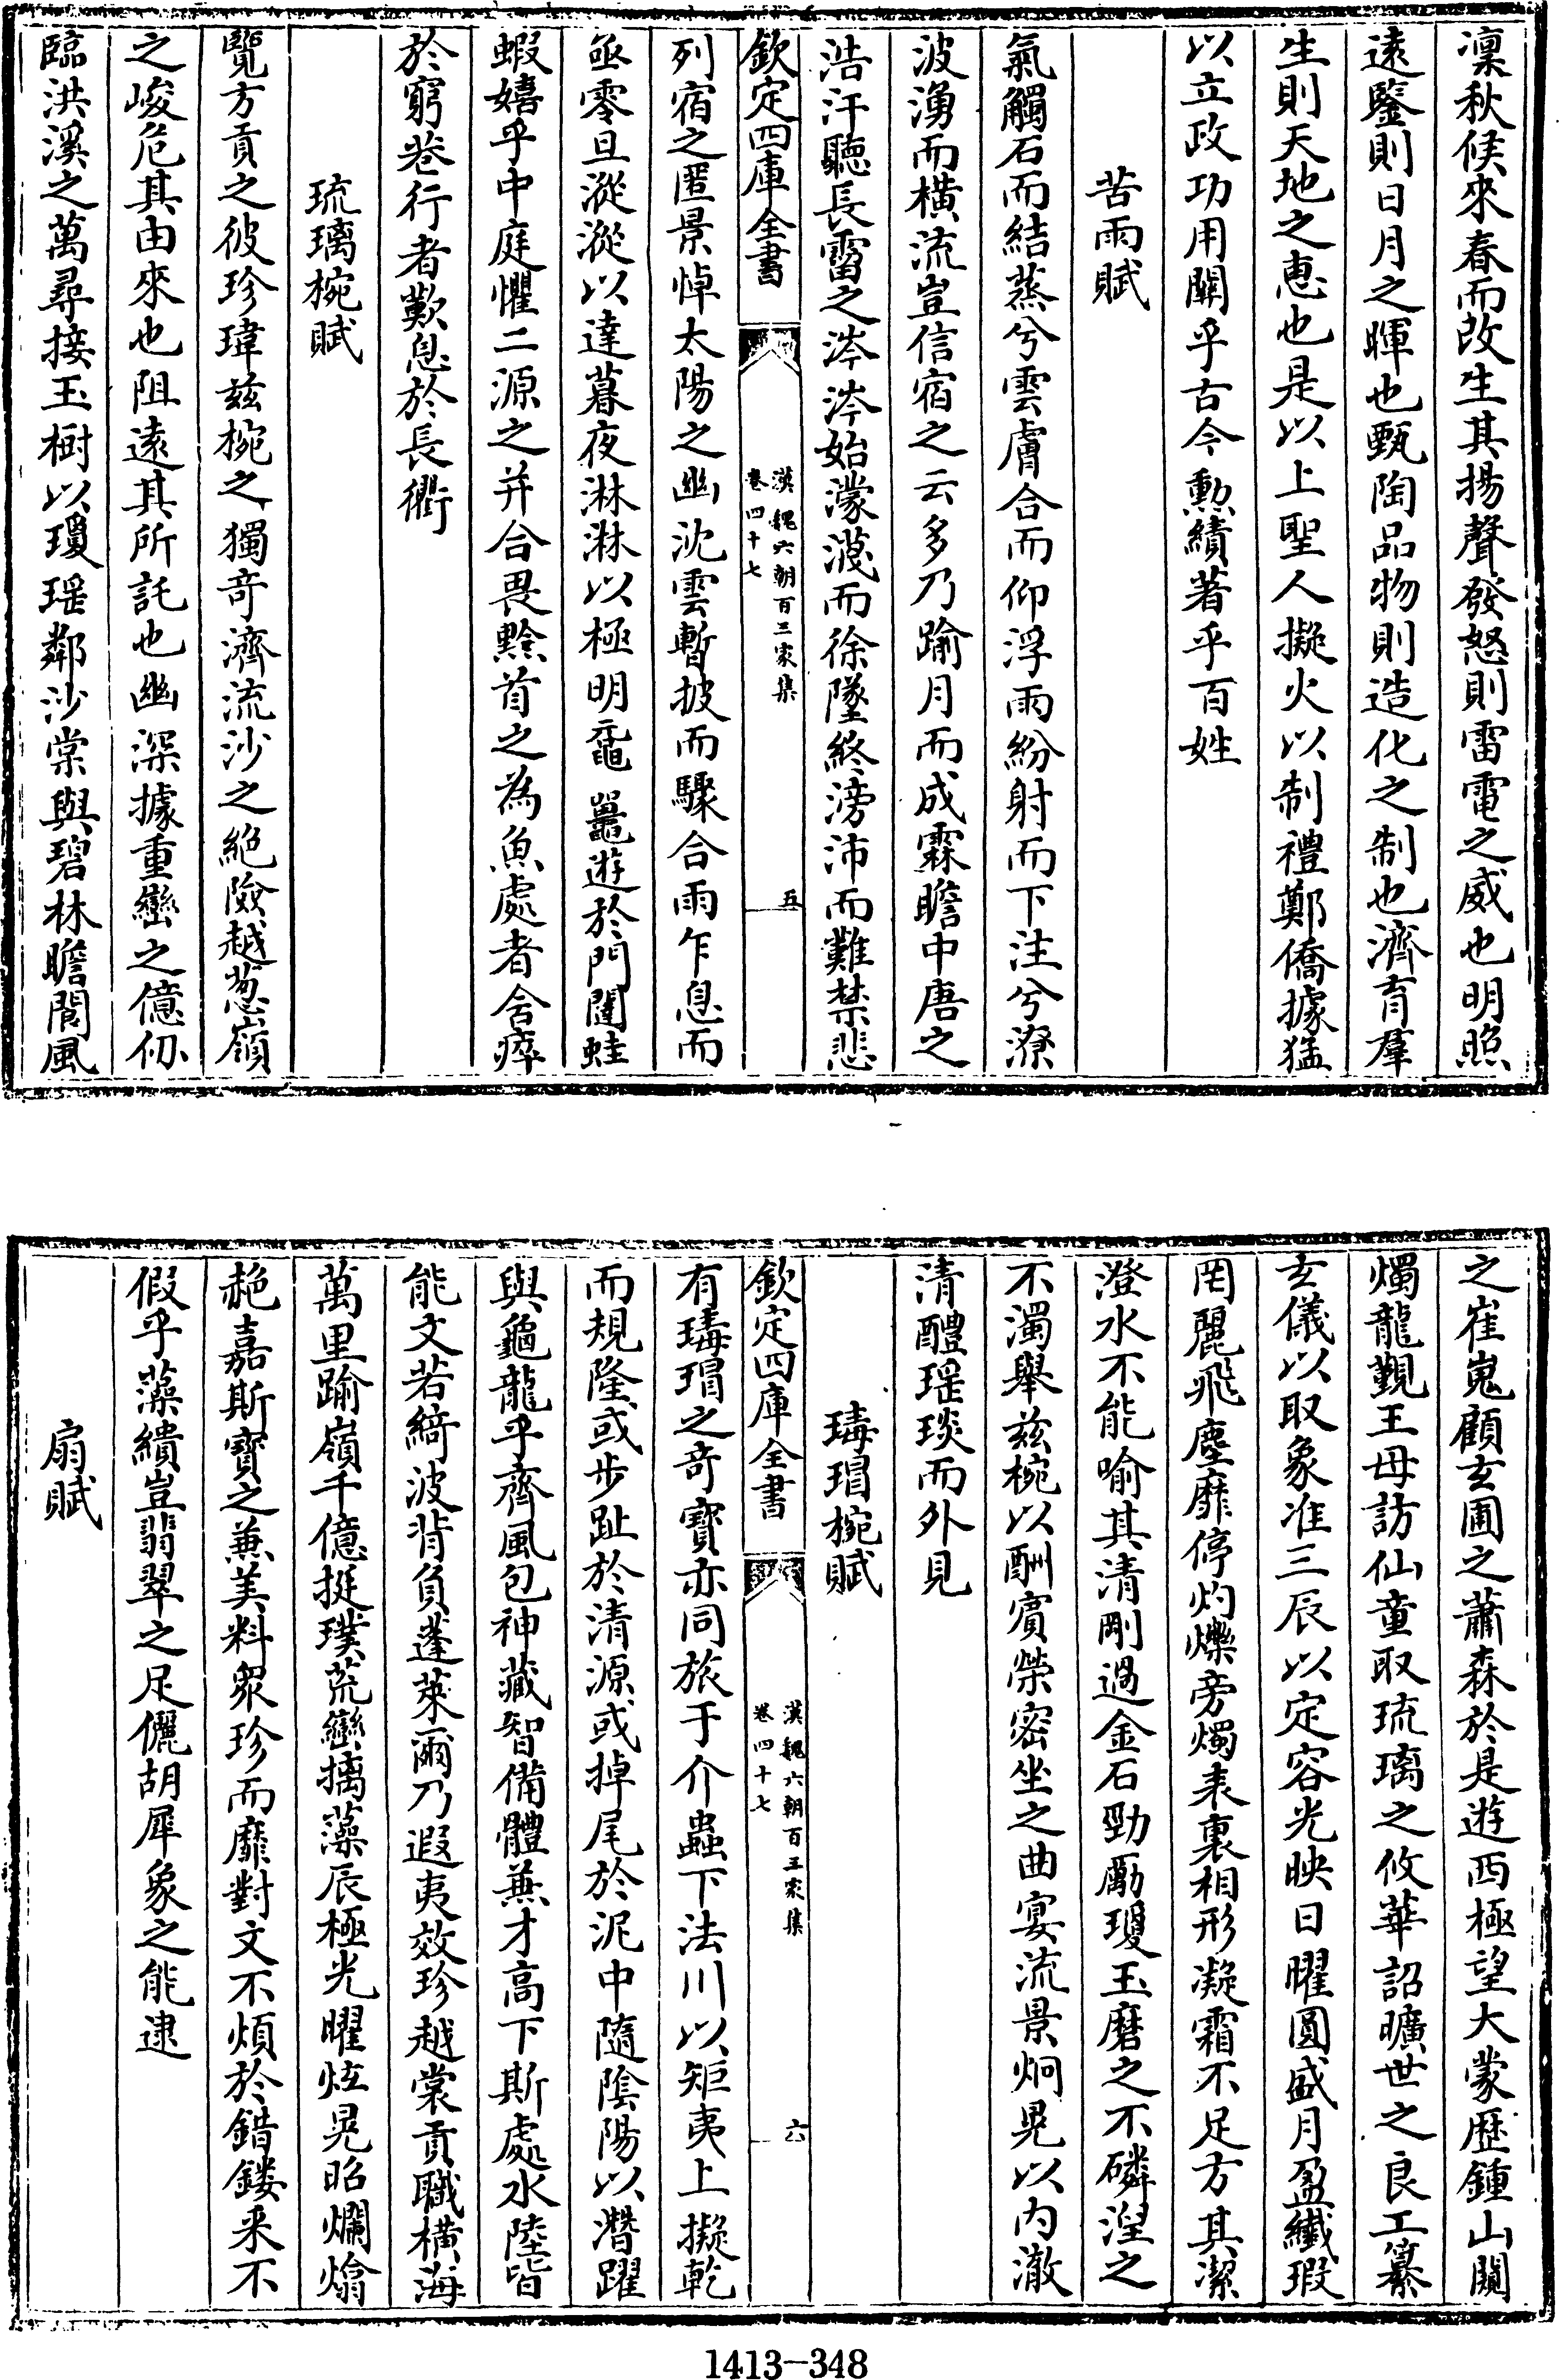 凜秋候來春而改生其揚聲發怒則雷電之威也明照
遠鑒則日月之暉也甄陶品物則造化之制也濟育羣
生則天地之惠也是以上聖人擬火以制禮鄭僑據猛
以立政功用關乎古今勲績著乎百姓
苦雨賦
氣觸石而結蒸兮雲膚合而仰浮雨紛射而下注兮潦
波湧而橫流豈信宿之云多乃踰月而成霖瞻中唐之
浩汗聽長霤之涔涔始濛濊而徐墜終滂沛而難禁悲
欽定四庫全書
漢魏六朝百三家集
卷四十七
五
列宿之匿景悼太陽之幽沈雲暫披而驟合雨乍息而
亟零旦漎漎以達暮夜淋淋以極明黿鼉遊於門闥蛙
蝦嬉乎中庭懼二源之并合畏黔首之為魚處者含瘁
於窮巷行者歎息於長衢
琉璃椀賦
覽方貢之彼珍瑋兹椀之獨奇濟流沙之絶險越葱嶺
之峻危其由來也阻遠其所託也幽深據重巒之億仞
臨洪溪之萬尋接玉樹以瓊瑶鄰沙棠與碧林瞻閬風
之崔嵬顧玄圃之蕭森於是遊西極望大蒙歴鍾山闚
燭龍覲王母訪仙童取琉璃之攸華詔曠世之良工纂
玄儀以取象准三辰以定容光映日曜圓盛月盈纎瑕
罔麗飛塵靡停灼爍旁燭表裏相形凝霜不足方其潔
澄水不能喻其清剛過金石勁勵瓊玉磨之不磷湼之
不濁舉兹椀以酬賓榮密坐之曲宴流景炯晃以内澈
清醴瑶琰而外見
瑇瑁椀賦
欽定四庫全書
漢魏六朝百三家集
卷四十七
六
有瑇瑁之奇寳亦同旅于介蟲下法川以矩夷上擬乾
而規隆或步趾於清源或掉尾於泥中隨陰陽以潛躍
與龜龍乎齊風包神藏智備體兼才高下斯處水陸皆
能文若綺波背負蓬萊爾乃遐夷效珍越裳貢職横海
萬里踰嶺千億挺璞荒巒摛藻辰極光曜炫晃昭爛熻
赩嘉斯寳之兼美料衆珍而靡對文不煩於錯鏤采不
假乎藻繢豈翡翠之足儷胡犀象之能逮
扇賦
1413-348